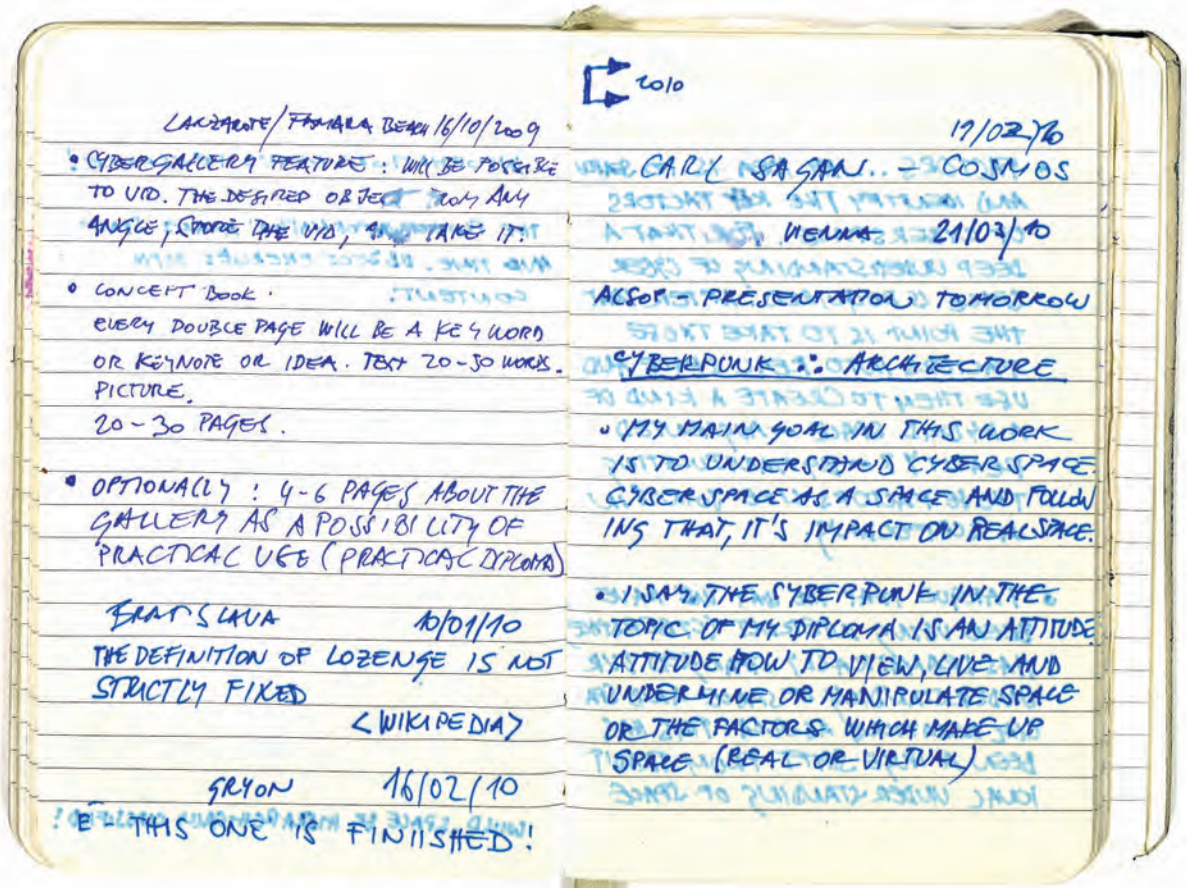 LANZAROTE/FAMARA BEACH 16/10/2009
• CYBERGALLERY FEATURE: WILL BE POSSIBLE
TO VID. THE DESIRED OBJECT FROM ANY
ANGLE, STORE THE VID, AND TAKE IT.
• CONCEPT BOOK.
EVERY DOUBLE PAGE WILL BE A KEYWORD
OR KEYNOTE OR IDEA. TEXT 20-50 WORDS.
PICTURE.
20-30 PAGES.
• OPTIONALLY: 4-6 PAGES ABOUT THE
GALLERY AS A POSSIBILITY OF
PRACTICAL USE (PRACTICAL DIPLOMA)
BRATISLAVA 10/01/10
THE DEFINITION OF LOZENGE IS NOT
STRICTLY FIXED
<WIKIPEDIA>
GRYON 16/02/10
E - THIS ONE IS FINIISHED!
2010
/10
CARL SAGAN.. - COSMOS
VIENNA 21/03/10
ALSOP - PRESENTATION TOMORROW
CYBERPUNK ∴ ARCHITECTURE
• MY MAIN GOAL IN THIS WORK
IS TO UNDERSTAND CYBERSPACE.
CYBERSPACE AS A SPACE AND FOLLOW
ING THAT, IT'S IMPACT ON REALSPACE.
• I SAY THE CYBERPUNK IN THE
TOPIC OF MY DIPLOMA IS AN ATTITUDE.
ATTITUDE HOW TO VIEW, LIVE AND
UNDERMINE OR MANIPULATE SPACE
OR THE FACTORS WHICH MAKE UP
SPACE (REAL OR VIRTUAL)